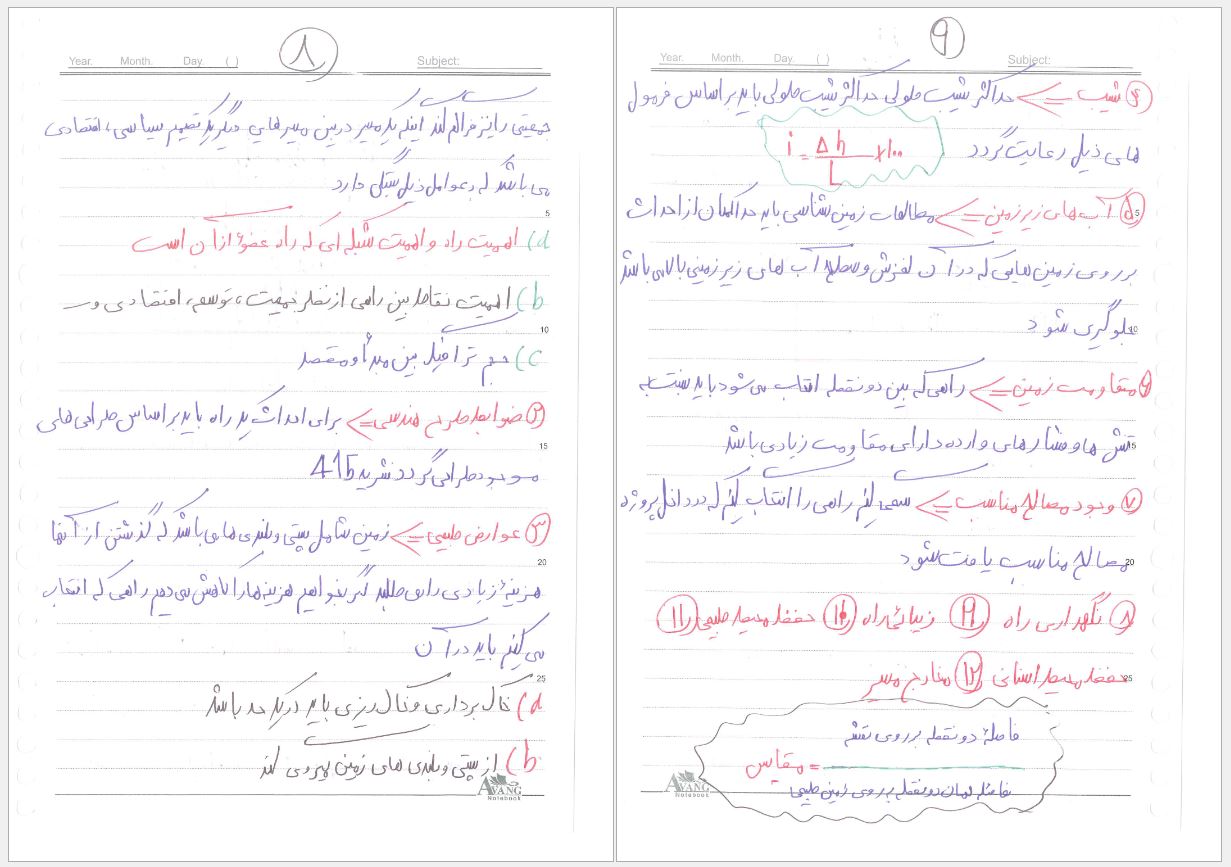 ۸
Year. Month. Day. ( ) Subject:
جمعیتی را نیز فراهم کند اینکه یک مسیر در بین مسیرهای دیگر یک تصمیم سیاسی، اقتصادی
می باشد که به عوامل ذیل بستگی دارد
5
a) اهمیت راه و اهمیت شبکه ای که راه عضو از آن است
b) اهمیت نقاط بین راهی از نظر جمعیت، توسعه، اقتصادی و
10
c) حجم ترافیک بین مبدأ و مقصد
۲ ضوابط طرح هندسی => برای احداث یک راه باید بر اساس طراحی های
15
موجود طراحی گردد نشریه 415
۳ عوارض طبیعی => زمین شامل پستی و بلندی هایی باشد که گذشتن از آنها
20
هزینه زیادی را می طلبد اگر بخواهیم هزینه ها را کاهش می دهیم راهی که انتخاب
می کنیم باید در آن
25
a) خاک برداری و خاک ریزی باید در یک حد باشد
b) از پستی و بلندی های زمین پیروی کند
AVANG
Notebook
۹
Year. Month. Day. ( ) Subject:
۴ شیب => حداکثر شیب طولی حداکثر شیب طولی باید بر اساس فرمول
های ذیل رعایت گردد i = Δh / L × ۱۰۰
5
۵ آب های زیرزمین => مطالعات زمین شناسی باید حداالمکان از احداث
بر روی زمین هایی که در آن لغزش و سطح آب های زیرزمینی بالا می باشد
10
جلوگیری شود
۶ مقاومت زمین => راهی که بین دو نقطه انتخاب می شود باید نسبت به
15
تنش ها و فشارهای وارده دارای مقاومت زیادی باشد
۷ وجود مصالح مناسب => سعی کنیم راهی را انتخاب کنیم که در داخل پروژه
20
مصالح مناسب یافت شود
۸ نگهداری راه ۹ زیبائی راه ۱۰ حفظ محیط طبیعی ۱۱
25
حفظ محیط انسانی ۱۲ مخارج مسیر
فاصله دو نقطه بر روی نقشه
مقیاس =
فاصله همان دو نقطه بر روی زمین طبیعی
AVANG
Notebook